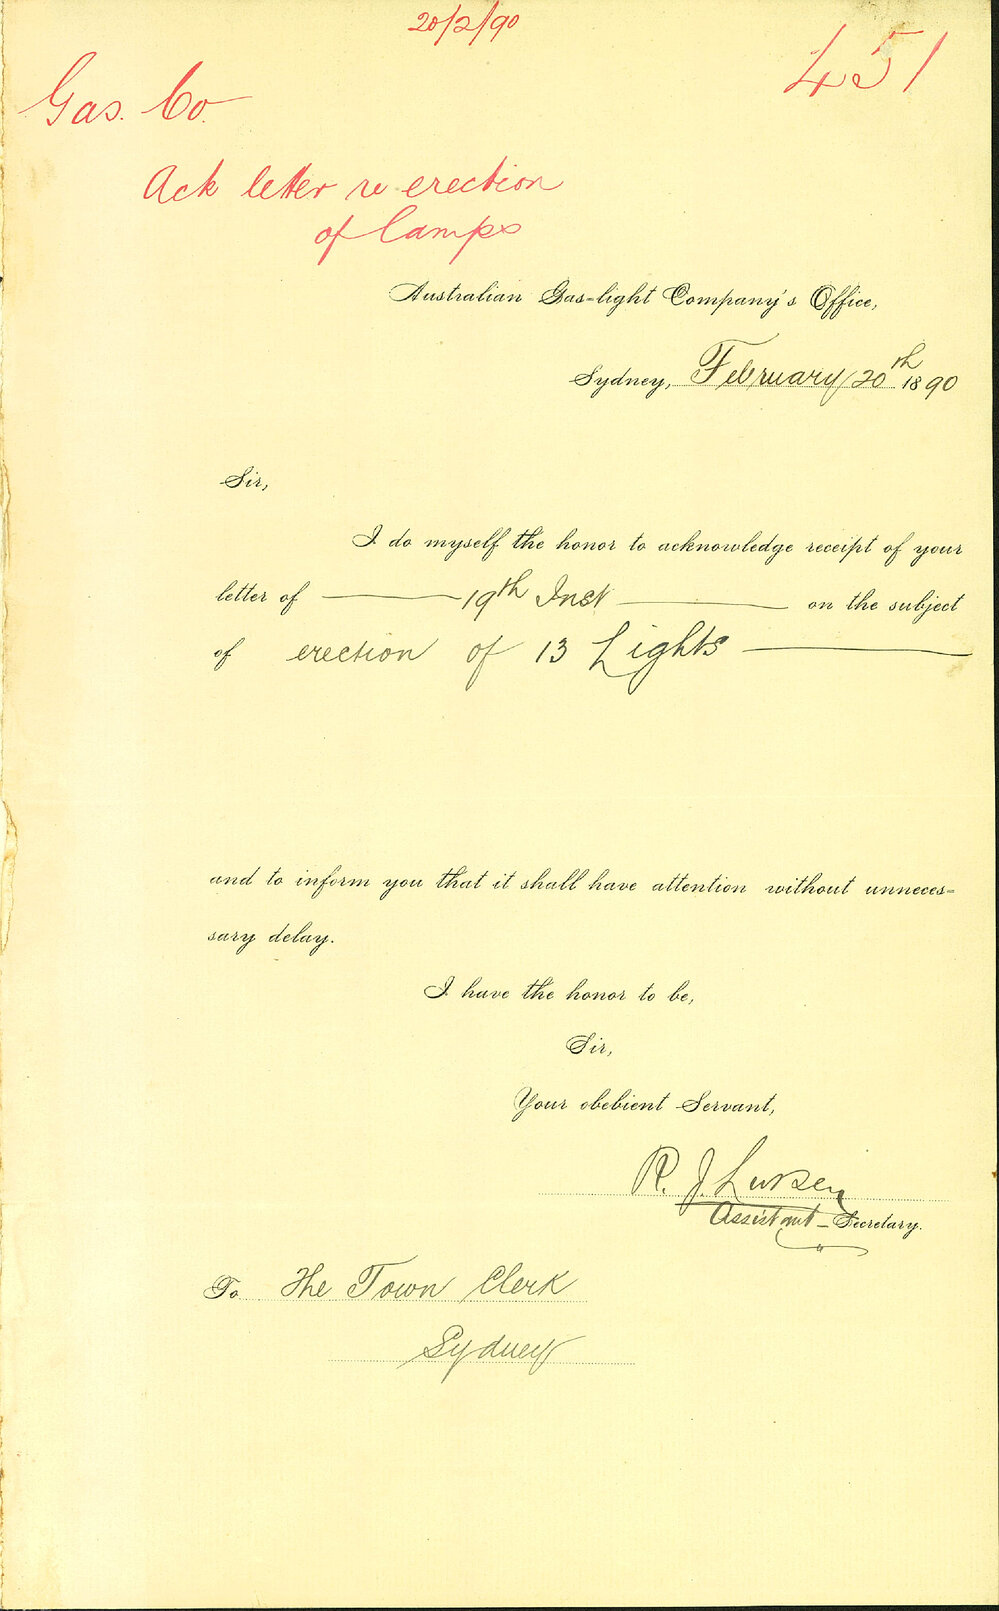 20/2/90
451
Gas. Co.
Ack letter re erection
of lamps
Australian Gas-light Company's Office,
Sydney, February 20th 1890
Sir,
I do myself the honor to acknowledge receipt of your
letter of 19th Inst on the subject
of erection of 13 Lights
and to inform you that it shall have attention without unneces-
sary delay.
I have the honor to be,
Sir,
Your obebient Servant,
R. J.
Assistant - Secretary.
To The Town Clerk
Sydney